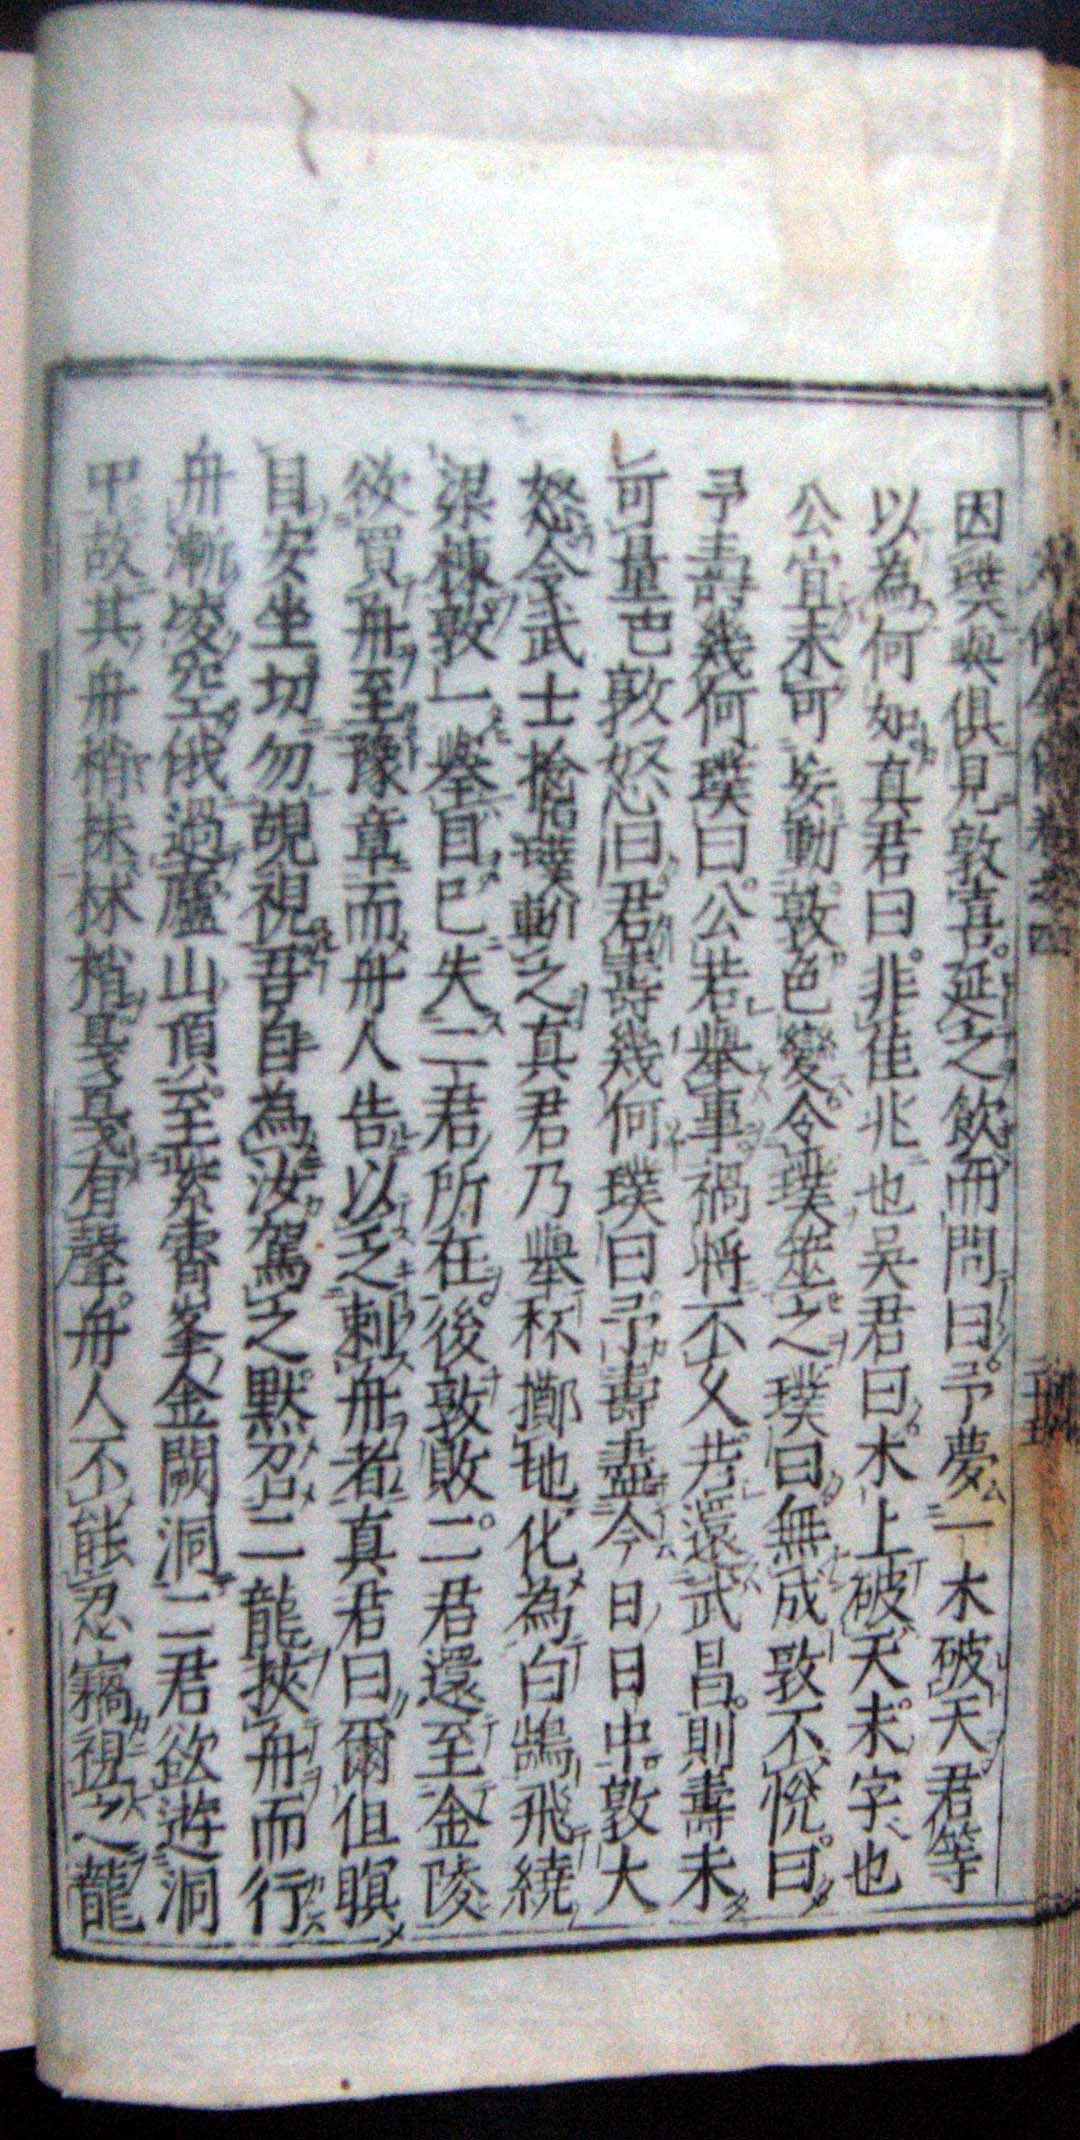 因璞與俱見敦喜。延之飲而問曰。予夢一木破天君等
以為何如真君曰。非佳兆也吳君曰木上破天未字也
公宜未可妄動。敦色變令璞筮之璞曰無成敦不悅。曰
予壽幾何璞曰。公若舉事禍將不久。若還武昌。則壽未
可量也敦怒曰君壽幾何璞曰予壽盡今日日中。敦大
怒令武士擒璞斬之真君乃舉杯擲地化為白鵠飛繞
梁棟敦一舉目已失二君所在。後敦敗。二君還至金陵
欲買舟至豫章而舟人告以乏刺舟者真君曰爾但瞑
目安坐切勿覘視吾自為汝駕之。默召二龍挾舟而行
舟漸凌空俄過廬山頂。至紫霄峯金闕洞二君欲遊洞
中故其舟稍抹林梢戛戛有聲。舟人不能忍竊視之龍